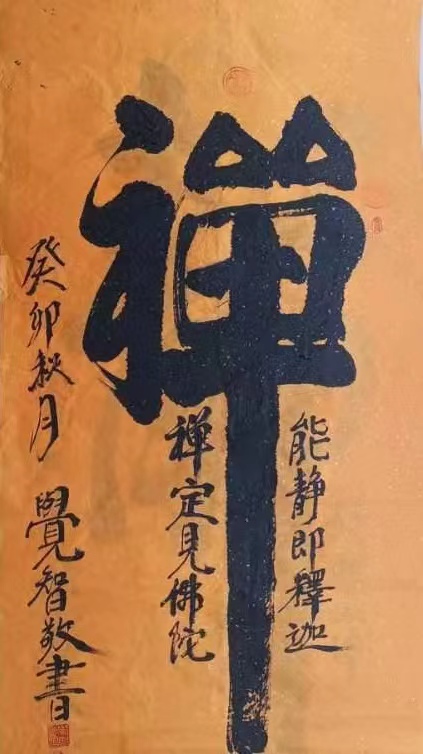 禅
能静即釋迦
禅定見佛陀
癸卯秋月
覺智敬書